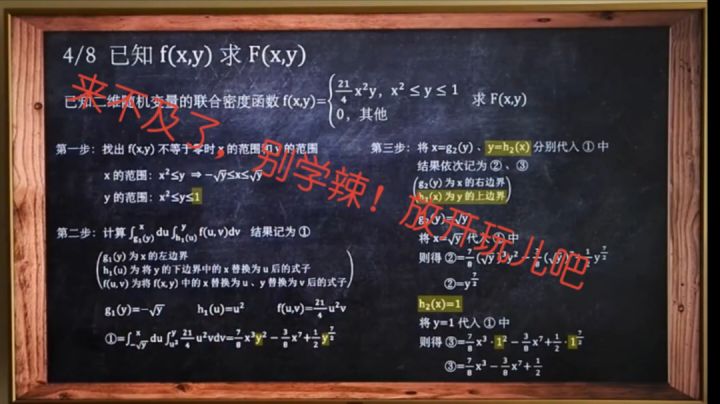 4/8 已知 f(x,y) 求 F(x,y)
已知二维随机变量的联合密度函数 f(x,y)={21/4 x²y, x² ≤ y ≤ 1 求 F(x,y)
0, 其他
来不及了，别学辣！放开玩儿吧
第一步：找出 f(x,y) 不等于零时 x 的范围和 y 的范围
x 的范围：x²≤y ⇒ -√y≤x≤√y
y 的范围：x²≤y≤1
第二步：计算 ∫_{g₁(y)}^{x} du ∫_{h₁(u)}^{y} f(u,v)dv 结果记为 ①
g₁(y) 为 x 的左边界
h₁(u) 为将 y 的下边界中的 x 替换为 u 后的式子
f(u,v) 为将 f(x,y) 中的 x 替换为 u 、y 替换为 v 后的式子
g₁(y)=-√y h₁(u)=u² f(u,v)=21/4 u²v
①=∫_{-√y}^{x} du ∫_{u²}^{y} 21/4 u²vdv=7/8 x³y² - 3/8 x⁷+1/2 y^{7/2}
第三步：将 x=g₂(y) 、y=h₂(x) 分别代入 ① 中
结果依次记为 ② 、③
g₂(y) 为 x 的右边界
h₂(x) 为 y 的上边界
g₂(y)=√y
将 x=√y 代入 ① 中
则得 ②=7/8 (√y)³y² - 3/8 (√y)⁷+1/2 y^{7/2}
②=y^{7/2}
h₂(x)=1
将 y=1 代入 ① 中
则得 ③=7/8 x³ · 1² - 3/8 x⁷+1/2 · 1^{7/2}
③=7/8 x³ - 3/8 x⁷+1/2